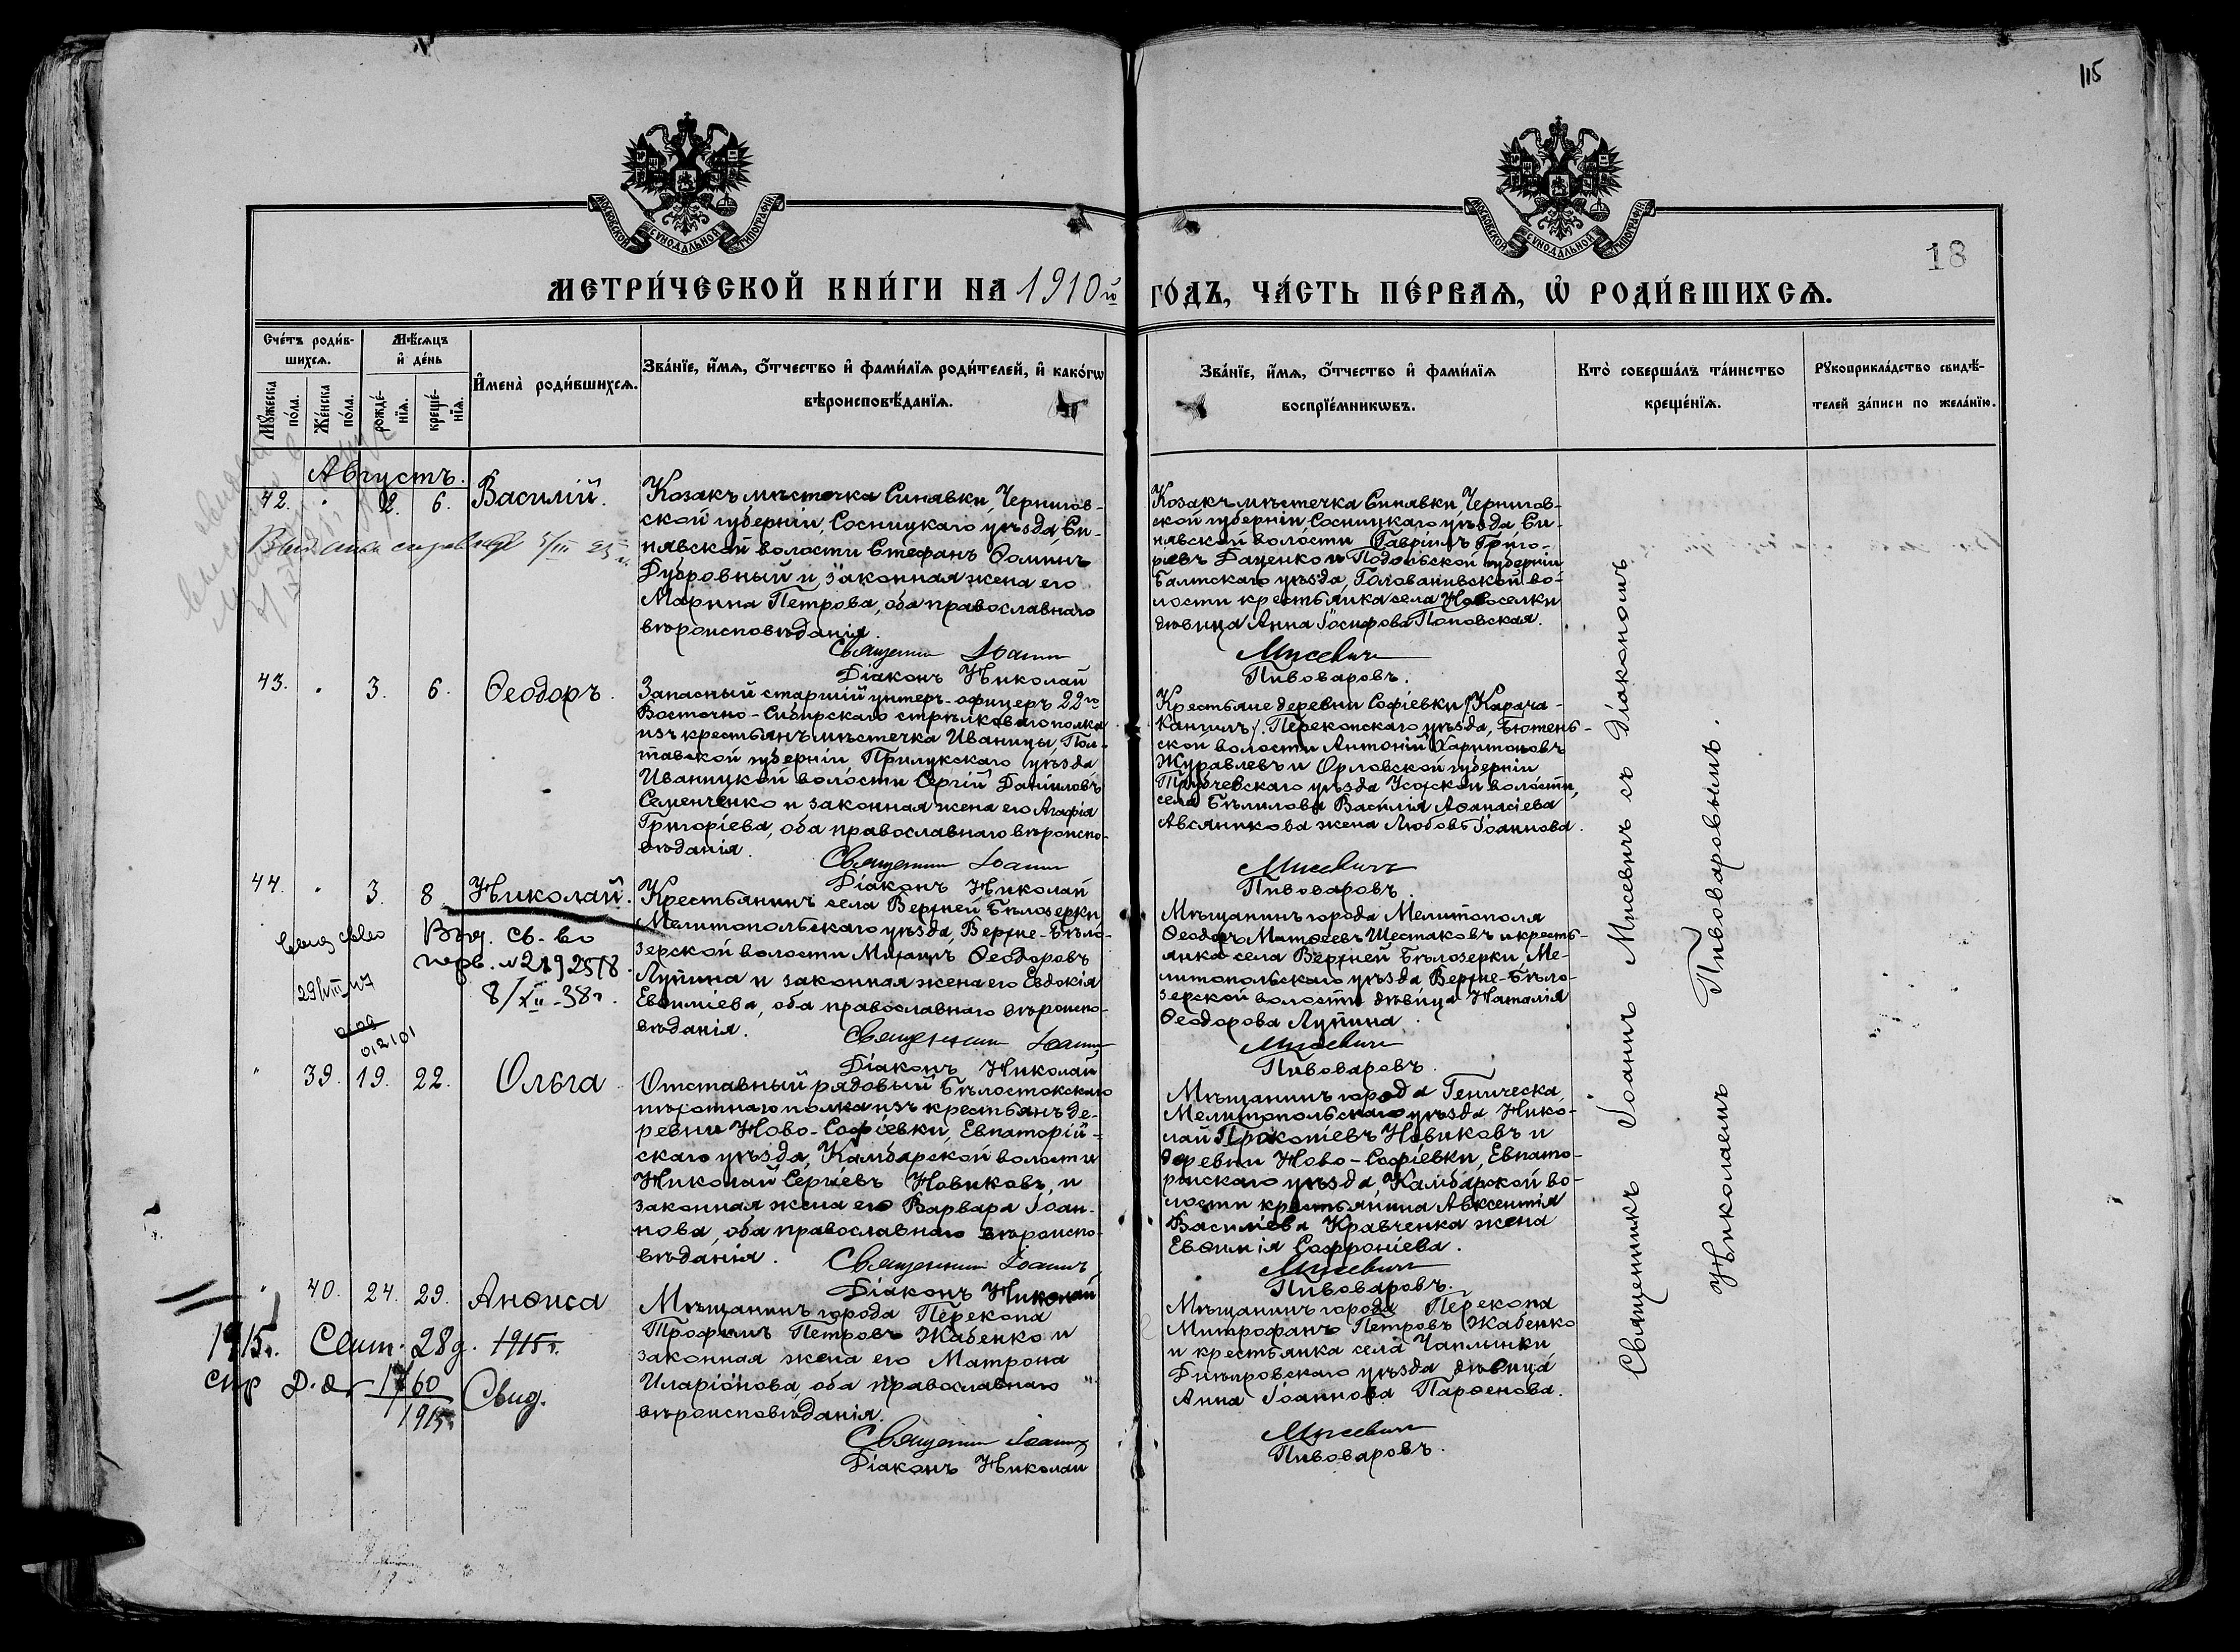 115
МОСКОВСКОЙ СѴНОДАЛЬНОЙ ТИПОГРАФІИ
МОСКОВСКОЙ СѴНОДАЛЬНОЙ ТИПОГРАФІИ
18
МЕТРИ́ЧЕСКОЙ КНИ́ГИ НА 1910й ГО́ДЪ, ЧА́СТЬ ПЕ́РВАѦ, Ѡ҆ РОДИ́ВШИХСѦ.
Сче́тъ роди́в-
шихсѧ.
Мѣ́сѧцъ
и҆ де́нь
Мꙋ́жеска
по́ла.
Же́нска
по́ла.
рожде́-
нїѧ.
креще́-
нїѧ.
И҆мена̀ роди́вшихсѧ.
Зва́нїе, и҆́мѧ, о҆́тчество и҆ фами́лїѧ роди́телей, и҆ како́гѡ
вѣроисповѣ́данїѧ.
Зва́нїе, и҆́мѧ, о҆́тчество и҆ фами́лїѧ
воспрїе́мникѡвъ.
Кто̀ соверша́лъ та́инство
креще́нїѧ.
Рꙋкоприкла́дство свидѣ́-
телей за́писи по жела́нїю.
Августъ.
42. " 2. 6. Василій.
Козакъ мѣстечка Синявки, Чернигов-
ской губерніи, Сосницкаго уѣзда, Си-
нявской волости Стефанъ Ѳоминъ
Дубровный и законная жена его
Марина Петрова, оба православнаго
вѣроисповѣданія.
Священникъ Іоаннъ
Діаконъ Николай
Козакъ мѣстечка Синявки, Чернигов-
ской губерніи, Сосницкаго уѣзда, Си-
нявской волости Гавріилъ Григо-
ріевъ Даценко и Подольской губерніи
Балтскаго уѣзда, Голованивской во-
лости крестьянка села Новоселки
дѣвица Анна Іосифова Поповская.
Мисевичъ
Пивоваровъ.
43. " 3. 6. Ѳеодоръ.
Запасный старшій унтеръ-офицеръ 22го
Восточно-Сибирскаго стрѣлковаго полка
изъ крестьянъ мѣстечка Иваницы, Пол-
тавской губерніи, Прилукскаго уѣзда
Иваницкой волости Сергій Даніиловъ
Семенченко и законная жена его Агафія
Григоріева, оба православнаго вѣроиспо-
вѣданія.
Священникъ Іоаннъ
Діаконъ Николай
Крестьяне деревни Софіевки /Карача-
Кангилъ/. Перекопскаго уѣзда, Бютень-
ской волости Антоній Харитоновъ
Журавлевъ и Орловской губерніи
Трубчевскаго уѣзда Усохской волости,
села Бѣлилова Василія Аѳанасіева
Авсяникова жена Любовь Іоаннова.
Мисевичъ
Пивоваровъ.
44. " 3. 8. Николай.
Выд. св-во
8/XII-38г.
Крестьянинъ села Верхней Бѣлозерки
Мелитопольскаго уѣзда, Верхне-Бѣло-
зерской волости Михаилъ Ѳеодоровъ
Лупина и законная жена его Евдокія
Евѳиміева, оба православнаго вѣроиспо-
вѣданія.
Священникъ Іоаннъ
Діаконъ Николай
Мѣщанинъ города Мелитополя
Ѳеодоръ Матѳеевъ Шестаковъ и кресть-
янка села Верхней Бѣлозерки, Ме-
литопольскаго уѣзда Верхне-Бѣло-
зерской волости дѣвица Наталія
Ѳеодорова Лупина.
Мисевичъ
Пивоваровъ.
" 39. 19. 22. Ольга
Отставный рядовый Бѣлостокскаго
пѣхотнаго полка изъ крестьянъ де-
ревни Ново-Софіевки, Евпаторій-
скаго уѣзда, Камбарской волости
Николай Сергіевъ Новиковъ, и
законная жена его Варвара Іоан-
нова, оба православнаго вѣроиспо-
вѣданія.
Священникъ Іоаннъ
Діаконъ Николай
Мѣщанинъ города Геническа,
Мелитопольскаго уѣзда Нико-
лай Прокопіевъ Новиковъ и
деревни Ново-Софіевки, Евпато-
рійскаго уѣзда, Камбарской во-
лости крестьянина Авксентія
Василіева Кравченка жена
Евѳимія Софроніева.
Мисевичъ
Пивоваровъ.
" 40. 24. 29. Анѳиса
1915г. Сент. 28д. 1915г.
1760
1915г. Свид.
Мѣщанинъ города Перекопа
Трофимъ Петровъ Жабенко и
законная жена его Матрона
Иларіонова, оба православнаго
вѣроисповѣданія.
Священникъ Іоаннъ
Діаконъ Николай
Мѣщанинъ города Перекопа
Митрофанъ Петровъ Жабенко
и крестьянка села Чаплынки
Днѣпровскаго уѣзда дѣвица
Анна Іоаннова Парѳенова.
Мисевичъ
Пивоваровъ.
Священникъ Іоаннъ Мисевичъ съ діакономъ
Николаемъ Пивоваровымъ.